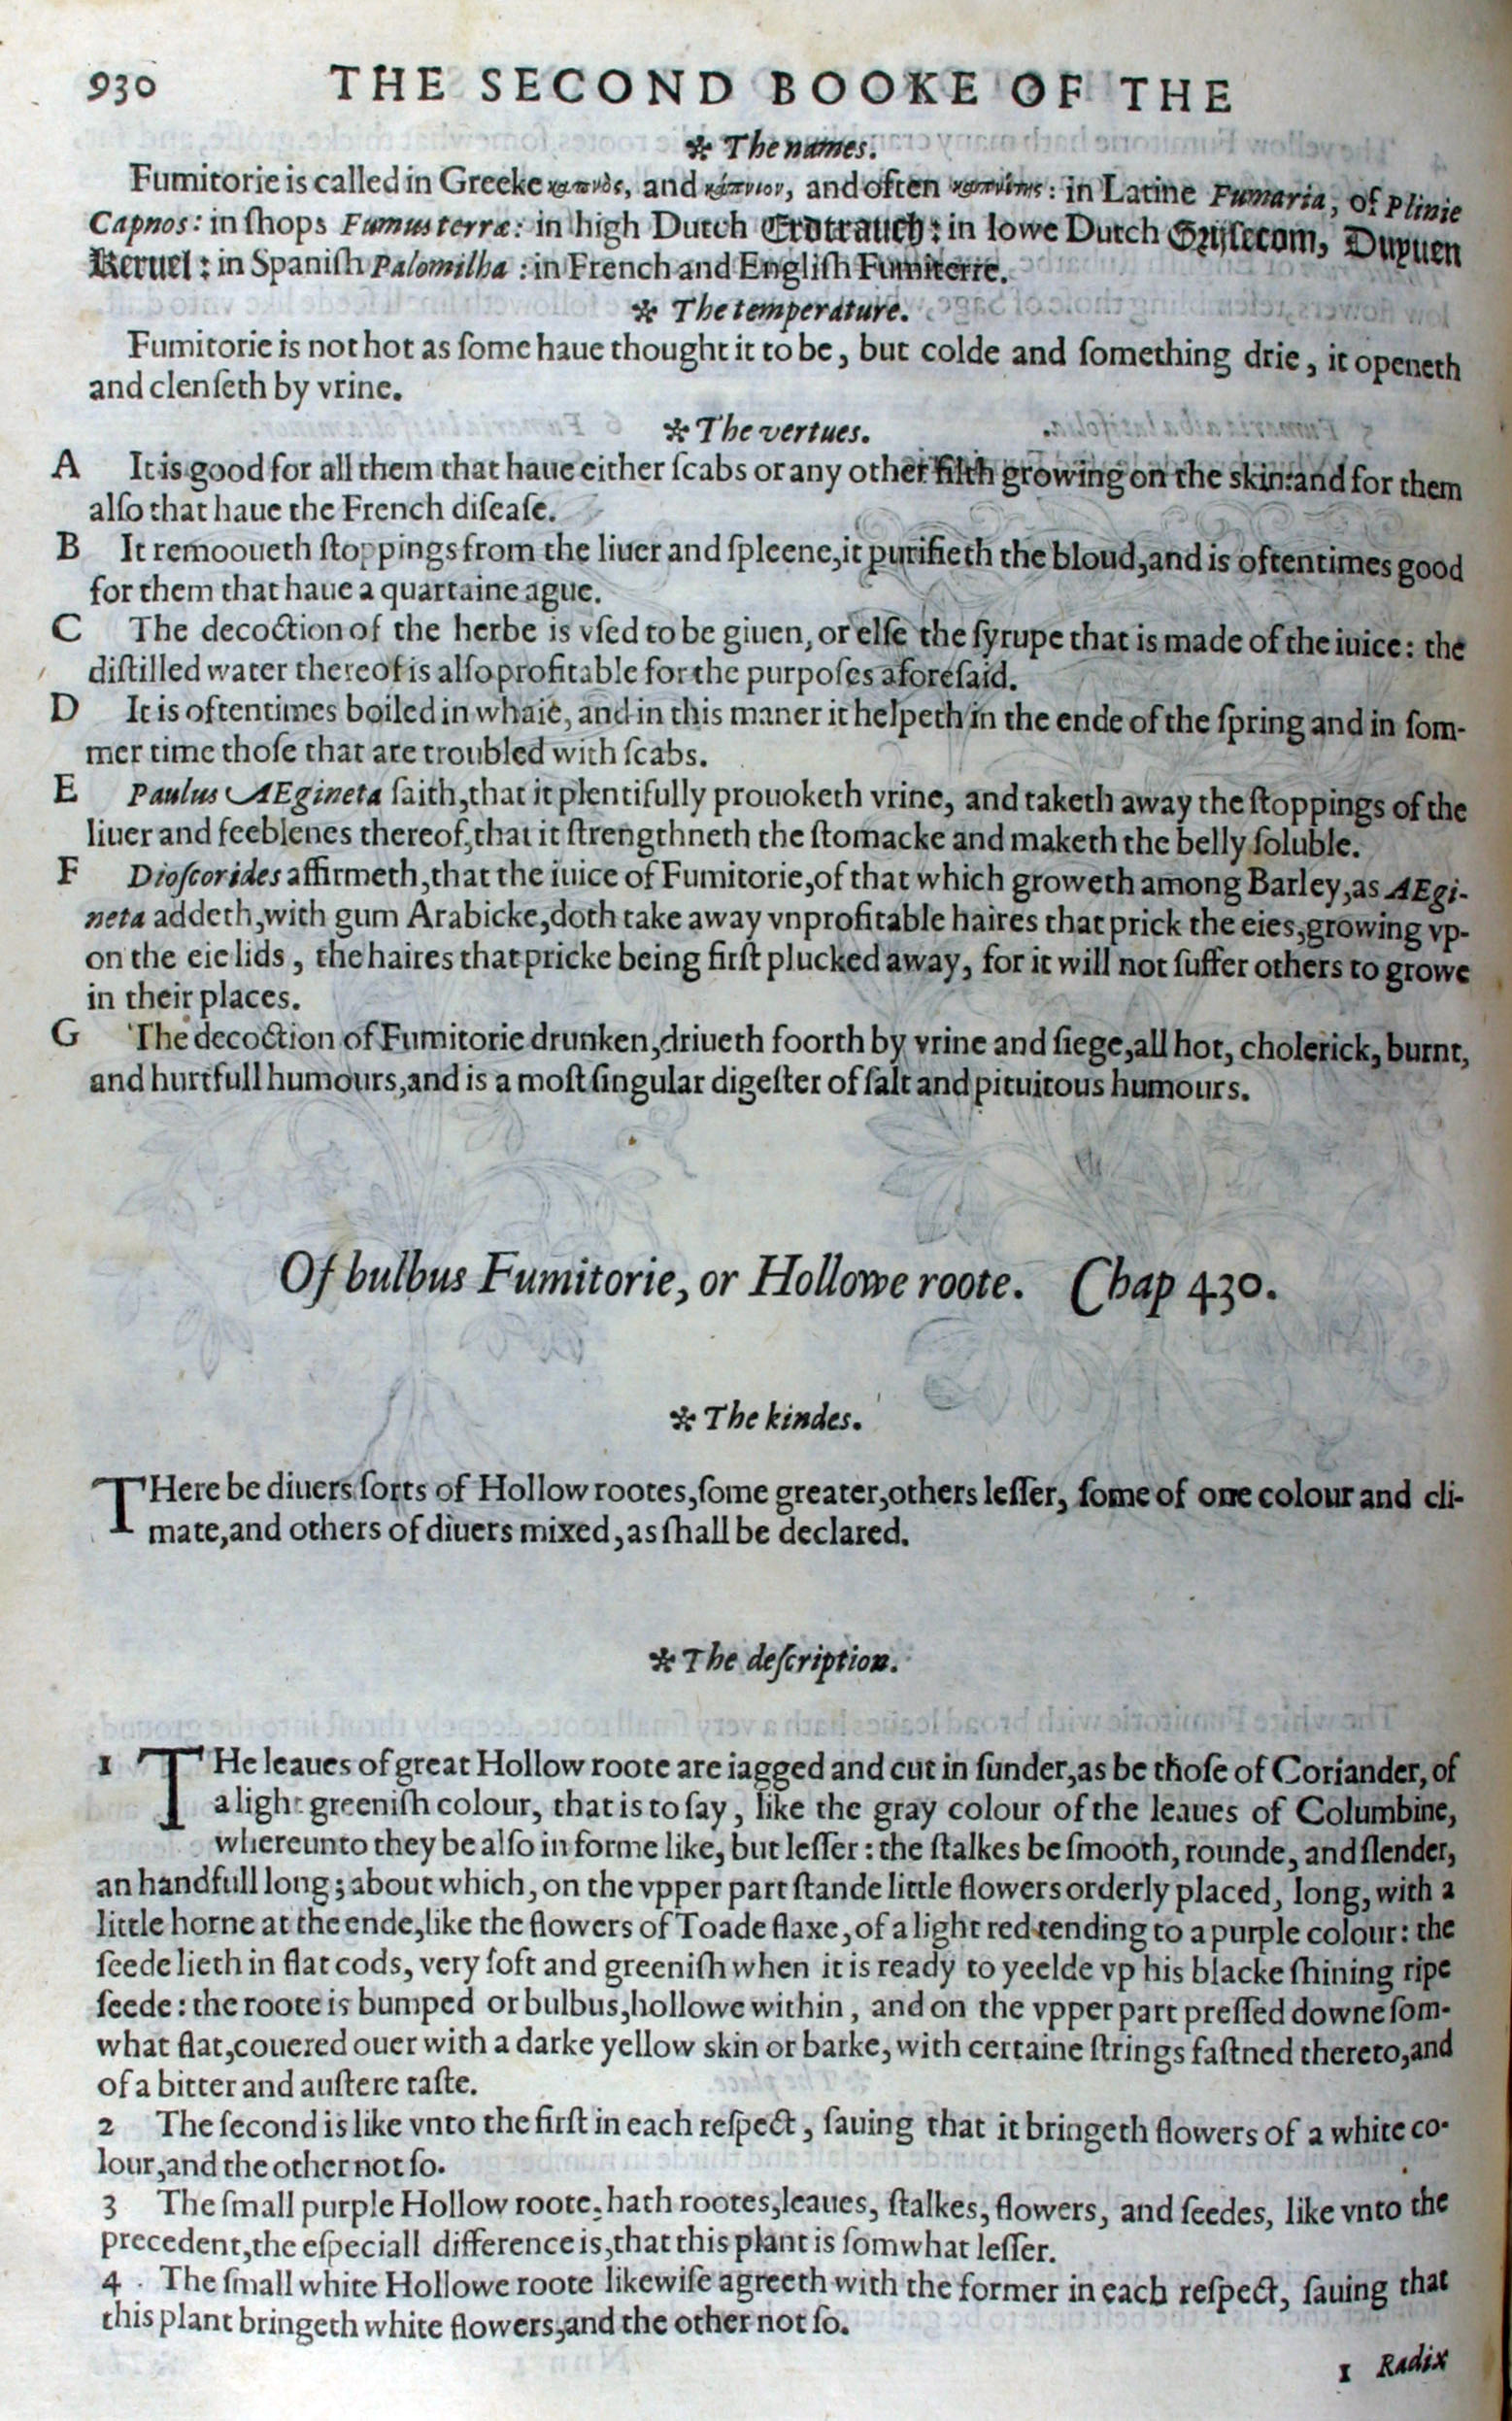 930 THE SECOND BOOKE OF THE
* The names.
Fumitorie is called in Greeke καπνὸς, and κάπνιον, and often καπνίτης: in Latine Fumaria, of Plinie
Capnos: in ſhops Fumus terræ: in high Dutch Erdtrauch: in lowe Dutch Grijſecom, Duyuen
Keruel: in Spaniſh Palomilha: in French and Engliſh Fumiterre.
* The temperature.
Fumitorie is not hot as ſome haue thought it to be, but colde and ſomething drie, it openeth
and clenſeth by vrine.
* The vertues.
A It is good for all them that haue either ſcabs or any other filth growing on the skin: and for them
alſo that haue the French diſeaſe.
B It remooueth ſtoppings from the liuer and ſpleene, it purifieth the bloud, and is oftentimes good
for them that haue a quartaine ague.
C The decoction of the herbe is vſed to be giuen, or elſe the ſyrupe that is made of the iuice: the
diſtilled water thereof is alſo profitable for the purpoſes aforeſaid.
D It is oftentimes boiled in whaie, and in this maner it helpeth in the ende of the ſpring and in ſom-
mer time thoſe that are troubled with ſcabs.
E Paulus AEgineta ſaith, that it plentifully prouoketh vrine, and taketh away the ſtoppings of the
liuer and feeblenes thereof, that it ſtrengthneth the ſtomacke and maketh the belly ſoluble.
F Dioſcorides affirmeth, that the iuice of Fumitorie, of that which groweth among Barley, as AEgi-
neta addeth, with gum Arabicke, doth take away vnprofitable haires that prick the eies, growing vp-
on the eie lids, the haires that pricke being firſt plucked away, for it will not ſuffer others to growe
in their places.
G The decoction of Fumitorie drunken, driueth foorth by vrine and ſiege, all hot, cholerick, burnt,
and hurtfull humours, and is a moſt ſingular digeſter of ſalt and pituitous humours.
Of bulbus Fumitorie, or Hollowe roote. Chap 430.
* The kindes.
THere be diuers ſorts of Hollow rootes, ſome greater, others leſſer, ſome of one colour and cli-
mate, and others of diuers mixed, as ſhall be declared.
* The deſcription.
1 THe leaues of great Hollow roote are iagged and cut in ſunder, as be thoſe of Coriander, of
a light greeniſh colour, that is to ſay, like the gray colour of the leaues of Columbine,
whereunto they be alſo in forme like, but leſſer: the ſtalkes be ſmooth, rounde, and ſlender,
an handfull long; about which, on the vpper part ſtande little flowers orderly placed, long, with a
little horne at the ende, like the flowers of Toade flaxe, of a light red tending to a purple colour: the
ſeede lieth in flat cods, very ſoft and greeniſh when it is ready to yeelde vp his blacke ſhining ripe
ſeede: the roote is bumped or bulbus, hollowe within, and on the vpper part preſſed downe ſom-
what flat, couered ouer with a darke yellow skin or barke, with certaine ſtrings faſtned thereto, and
of a bitter and auſtere taſte.
2 The ſecond is like vnto the firſt in each reſpect, ſauing that it bringeth flowers of a white co-
lour, and the other not ſo.
3 The ſmall purple Hollow roote, hath rootes, leaues, ſtalkes, flowers, and ſeedes, like vnto the
precedent, the eſpeciall difference is, that this plant is ſomwhat leſſer.
4 The ſmall white Hollowe roote likewiſe agreeth with the former in each reſpect, ſauing that
this plant bringeth white flowers, and the other not ſo.
1 Radix